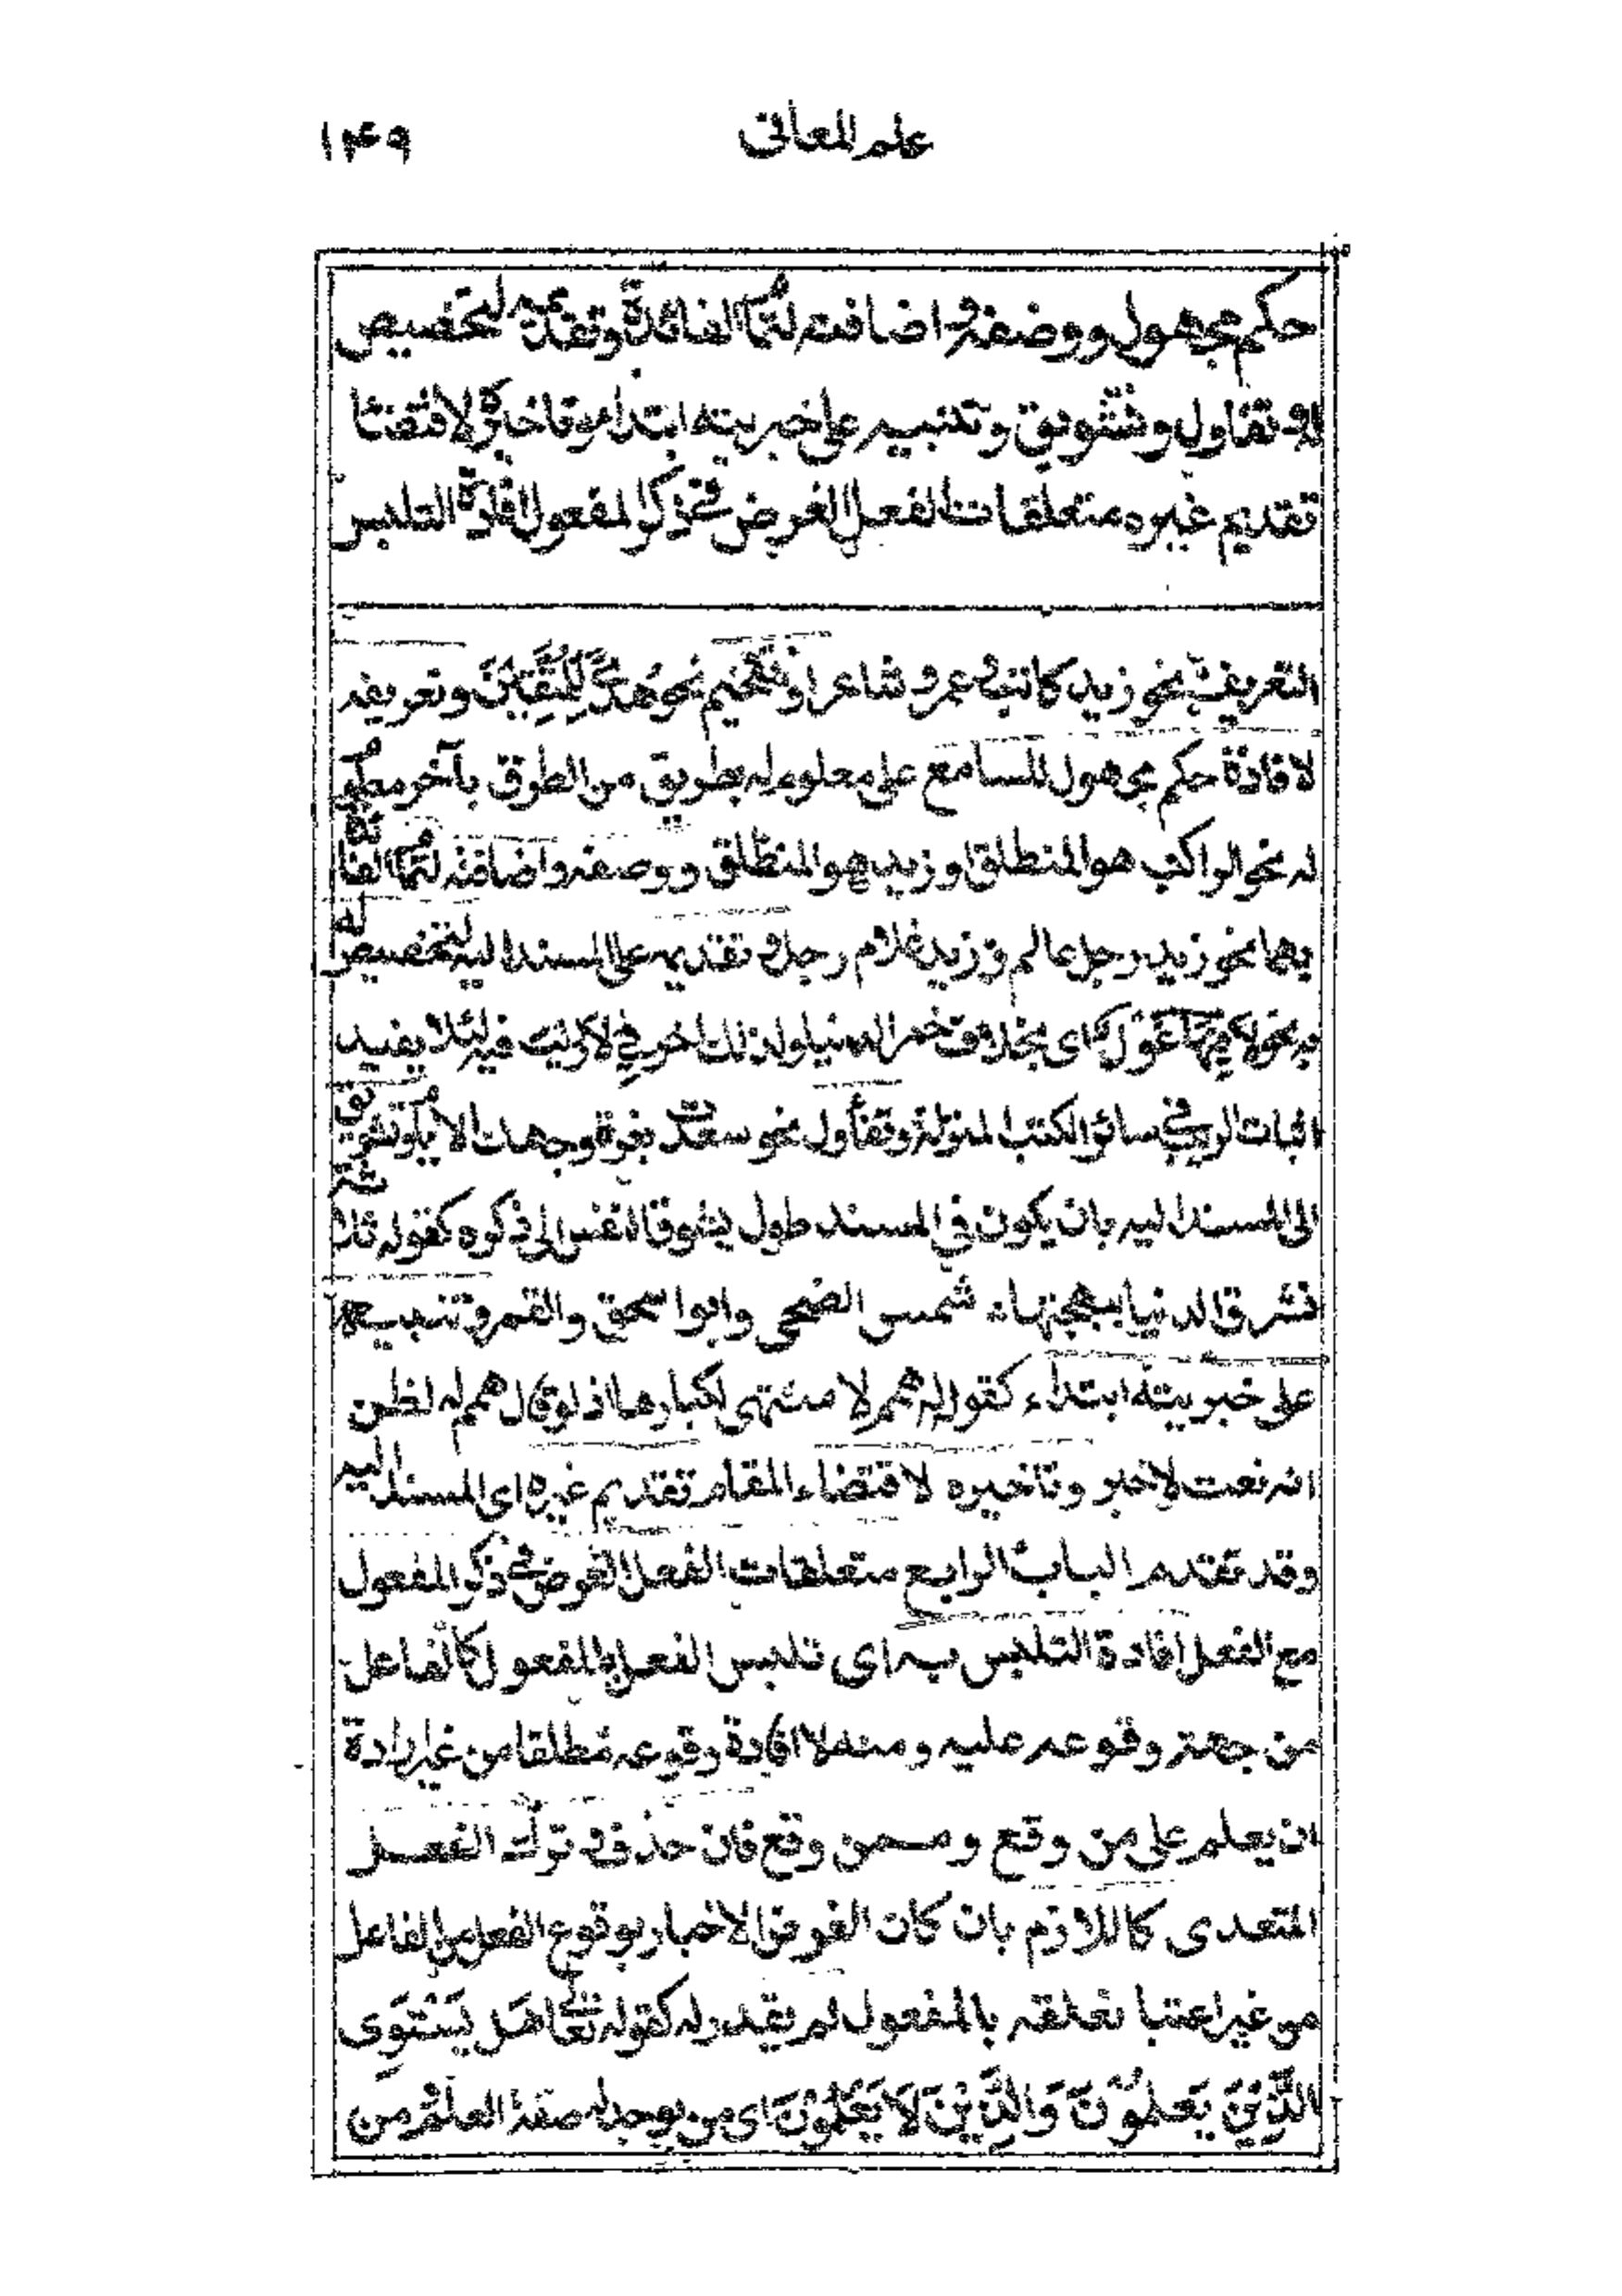 علم المعانى ١٤٩
حكم مجهول ووصفه واضافته لتمام الفائدة وتقديمه لتخصيص
له وتفاول وتشويق وتنبيه على خبريته ابتداء وتاخيره لاقتضا
تقديم غيره متعلقات الفعل الغرض فى ذكر المفعول افادة التلبس
التعريف نحو زيد كاتب وعمرو شاعر او تفخيم نحو هُدًى لِّلْمُتَّقِيْنَ وتعريفه
لافادة حكم مجهول للسامع على معلوم له بطريق من الطرق بآخر معلوم
له نحو الراكب هو المنطلق او زيد هو المنطلق ووصفه واضافته لتمام الفائدة
بهما نحو زيد رجل عالم وزيد غلام رجل وتقديمه على المسند اليه لتخصيص له
به نحو لا فِيْهَا غَوْلٌ اى بخلاف خمر الدنيا ولذلك اخر فى لا ريب فيه لئلا يفيد
اثبات الريب فى سائر الكتب المنزلة وتفأول نحو سعدت بغرة وجهك الايام وتشويق
الى المسند اليه بان يكون فى المسند طول يشوق النفس الى ذكره كقوله ثلثة
تشرق الدنيا ببهجتها، شمس الضحى وابو اسحق والقمر وتنبيه
على خبريته ابتداء كقوله له همم لا منتهى لكبارها اذ لو قال همم له لظن
انه نعت لا خبر وتاخيره لاقتضاء المقام تقديم غيره اى المسند اليه
وقد تقدم الباب الرابع متعلقات الفعل الغرض فى ذكر المفعول
مع الفعل افادة التلبس به اى تلبس الفعل بالمفعول كالفاعل
من جهة وقوعه عليه ومنه لا افادة وقوعه مطلقا من غير ارادة
ان يعلم على من وقع وممن وقع فان حذف ونزل الفعل
المتعدى كاللازم بان كان الغرض الاخبار بوقوع الفعل من الفاعل
من غير اعتبا تعلقه بالمفعول لم يقدر له كقوله تعالى هَلْ يَسْتَوِى
الَّذِيْنَ يَعْلَمُوْنَ وَالَّذِيْنَ لَا يَعْلَمُوْنَ اى من يوجد له صفة العلم ومن